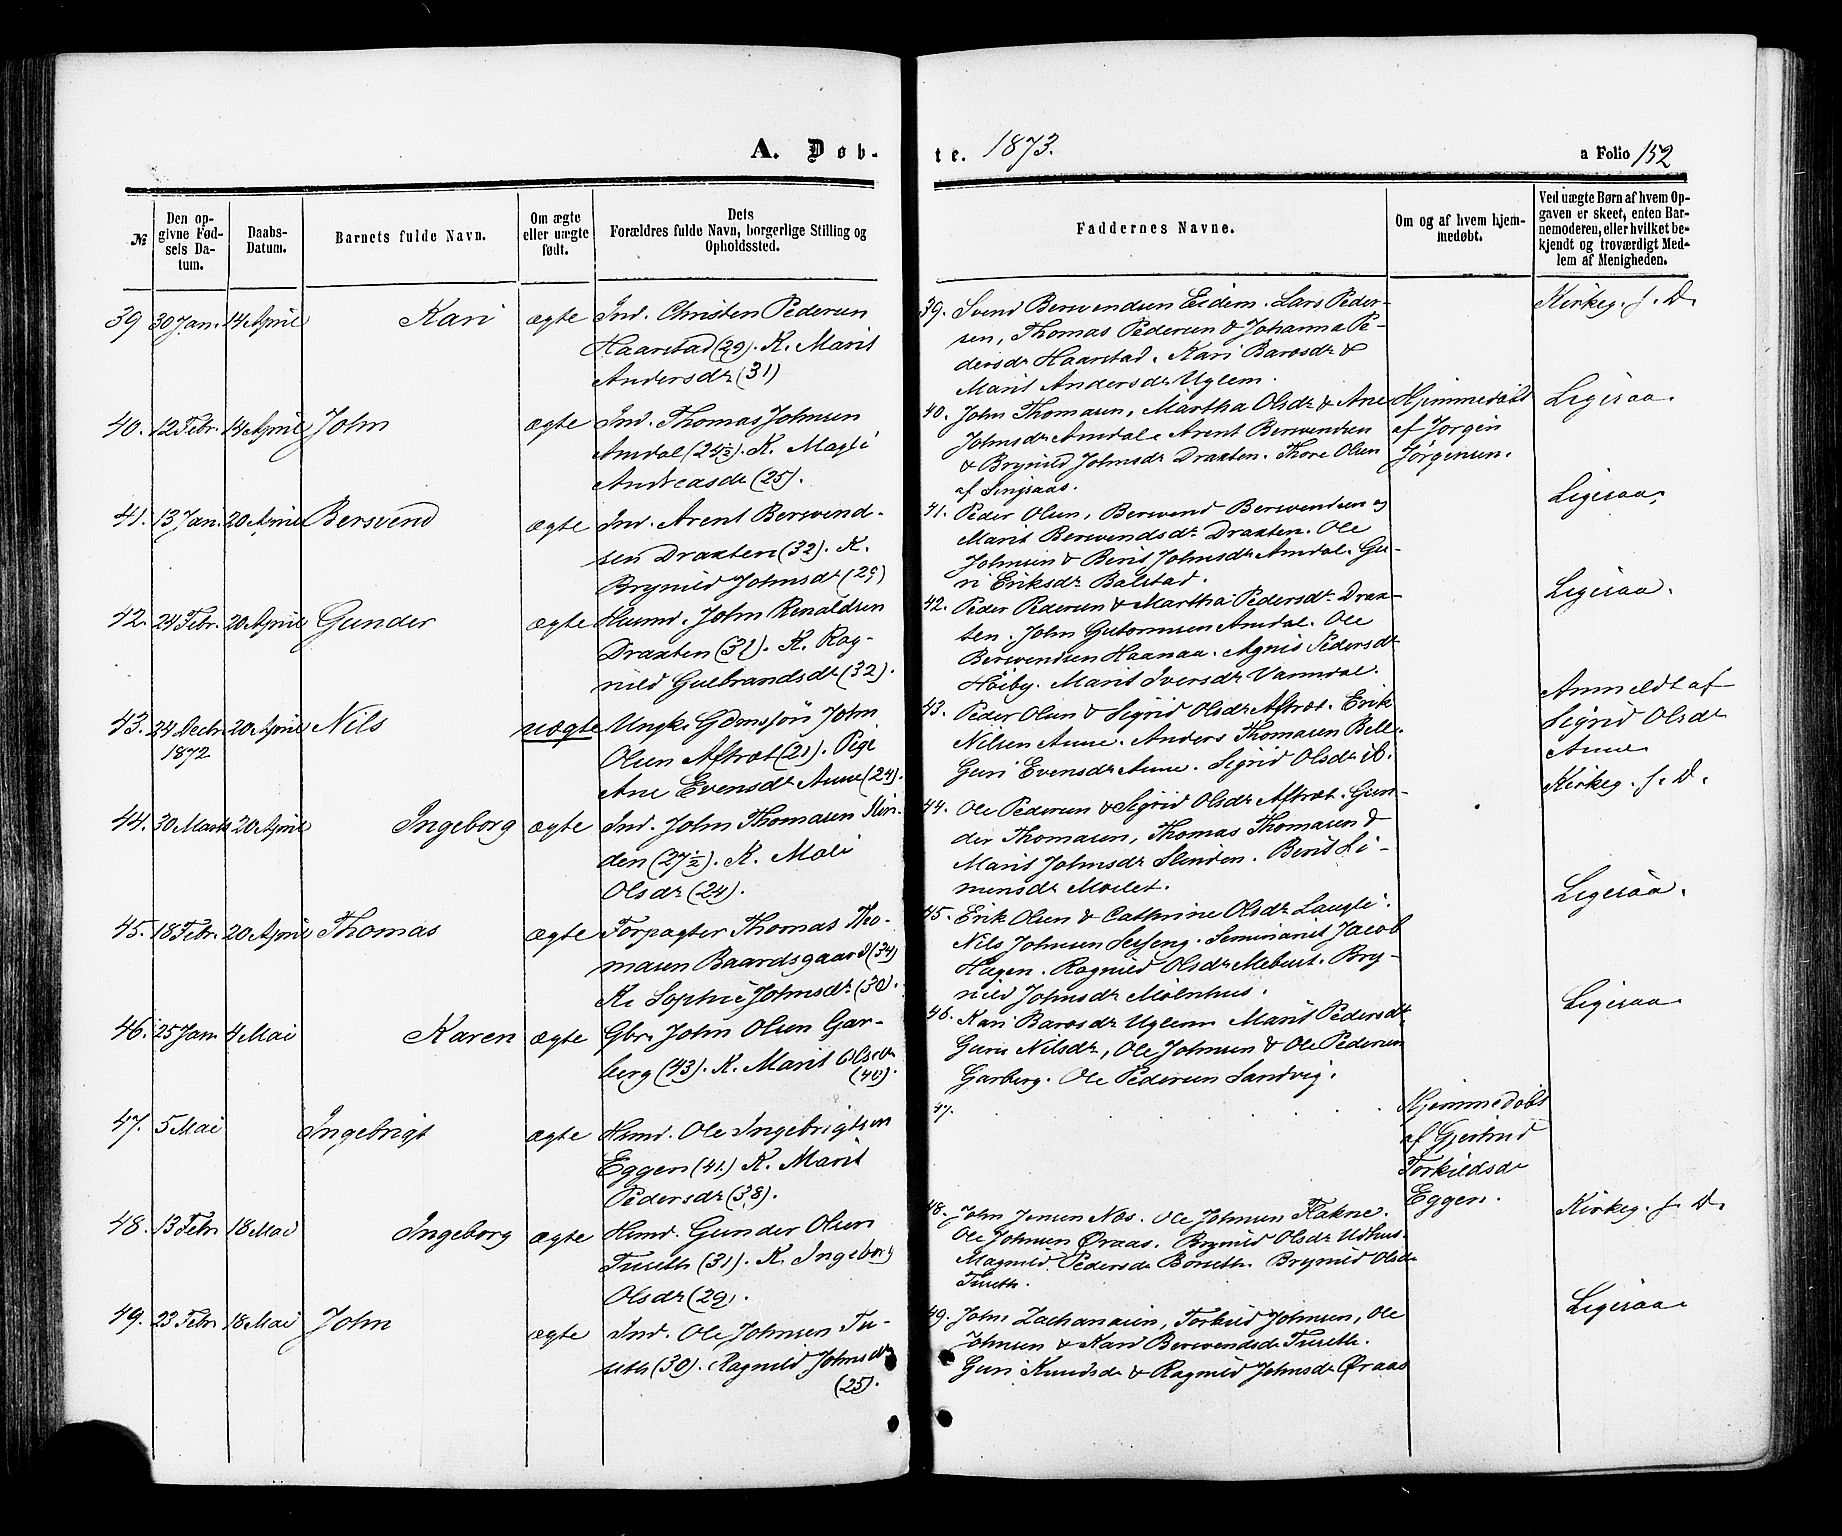 A. Døb-
te. 1873.
a Folio 152
№
Den op-
givne Fød-
sels Da-
tum.
Daabs-
Datum.
Barnets fulde Navn.
Om ægte
eller uægte
født.
Dets
Forældres fulde Navn, borgerlige Stilling og
Opholdssted.
Faddernes Navne.
Om og af hvem hjem-
medøbt.
Ved uægte Børn af hvem Op-
gaven er skeet, enten Bar-
nemoderen, eller hvilket be-
kjendt og troværdigt Med-
lem af Menigheden.
39 30 Jan. 14 April Kari ægte Ind. Christen Pedersen
Haarstad (29). K. Marit
Andersdr (31)
39. Svend Bersvendsen Eidem. Lars Peder-
sen, Thomas Pedersen & Johanna Pe-
dersdr Haarstad. Kari Baros​dr &
Marit Andersdr Uglem.
Kirkeg. f. D.
40. 12 Febr. 14 April John ægte Ind. Thomas Johnsen
Amdal (24½). K. Magli
Andreasdr (25).
40. John Thomasen, Martha Olsdr & Ane
Johnsdr Amdal. Arent Bersvendsen
& Brynild Johnsdr Draxten. Thore Olsen
af Singsaas.
Hjemmedøbt
af Jørgen
Jørgensen.
Ligesaa.
41. 13 Jan. 20 April Bersvend ægte Ind. Arent Bersvend-
sen Draxten (32). K.
Brynild Johnsdt (29)
41. Peder Olsen, Bersvend Bersvendsen og
Marit Bersvendsdr Draxten. Ole
Johnsen & Berit Johnsdr Amdal. Gu-
ri Eriksdr Balstad.
Ligesaa.
42. 24 Febr. 20 April Gunder ægte Husmd. John Renaldsen
Draxten (31). K. Rag-
nild Gulbrandsdt (32).
42. Peder Pedersen & Martha Pedersdr Drax-
ten. John Guttormsen Amdal. Ole
Bersvendsen Haanaa. Agnis Pedersdt
Høiby. Marit Iversdr Vanndal.
Ligesaa.
43. 24 Decbr. 20 April Nils uægte Ungk. Gdmssøn John
1872
Olsen Aftræt (21). Pige
Ane Evensdr Aune (24).
43. Peder Olsen & Sigrid Olsdr Aftræt. Erik
Nilsen Aune. Anders Thomasen Bell.
Guri Evensdr Aune. Sigrid Olsdr ib.
Anmeldt af
Sigrid Olsdr
Aune
44. 30 Marts 20 April Ingeborg ægte Ind. John Thomasen Slin-
den (27½). K. Mali
Olsdr (24).
44. Ole Pedersen & Sigrid Olsdr Aftræt. Gun-
der Thomasen, Thomas Thomasen &
Marit Johnsdr Slinden. Berit Si-
mensdr Moslet.
Kirkeg. f. D.
45. 18 Febr. 20 April Thomas ægte Forpagter Thomas Tho-
masen Baardsgaard (34)
K. Sophie Johnsdr. (30.
45. Erik Olsen & Cathrine Olsdr Laugli.
Nils Johnsen Selseng. Seminarist Jacob
Hagen. Ragnild Olsdr Mebust. Bry-
nild Johnsdr Mølnhus.
Ligesaa.
46. 25 Jan. 4 Mai Karen ægte Gbr. John Olsen Gar-
berg (43). K. Marit Olsdr
(40).
46. Kari Barosdr Uglem Marit Pedersdt,
Guru Nilsdr, Ole Johnsen & Ole Pedersen
Garberg. Ole Pedersen Sandvig.
Ligesaa
47. 5 Mai Ingebrigt ægte Hsmd. Ole Ingebrigtsen
Eggen (41.) K. Marit
Pedersdr (38).
47.
Hjemmedøbt
af Gjertrud
Torkildsdr
Eggen.
48. 13 Febr 18 Mai Ingeborg ægte Hsmd. Gunder Olsen
Tuseth (31). K. Ingeborg
Olsdr (29).
48. John Jensen Nos. Ole Johnsen Flakne.
Ole Johnsen Øraas. Brynild Olsdr Udhus.
Magnild Pedersdr Borseth. Brynild Olsdr
Tuseth.
Kirkeg. f. D.
49. 23 Febr 18 Mai John ægte Ind. Ole Johnsen Tu-
seth (30). Ragnild Johnsdr
(25).
49. John Zachariasen, Torkild Johnsen, Ole
Johnsen & Kari Bersvendsdr Tuseth.
Guri Knudsdr & Ragnild Johnsdr Øraas
Ligesaa